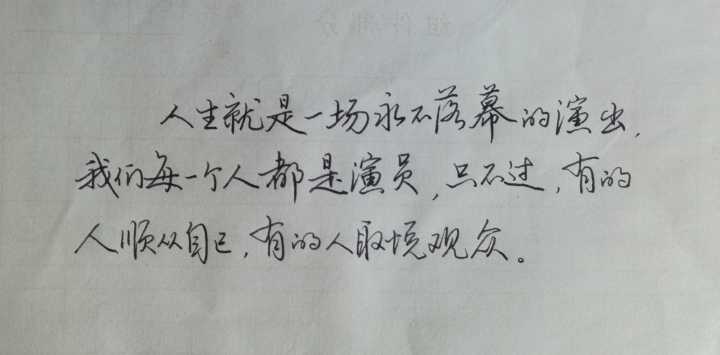 人生就是一场永不落幕的演出,
我们每一个人都是演员,只不过,有的
人顺从自己,有的人取悦观众。